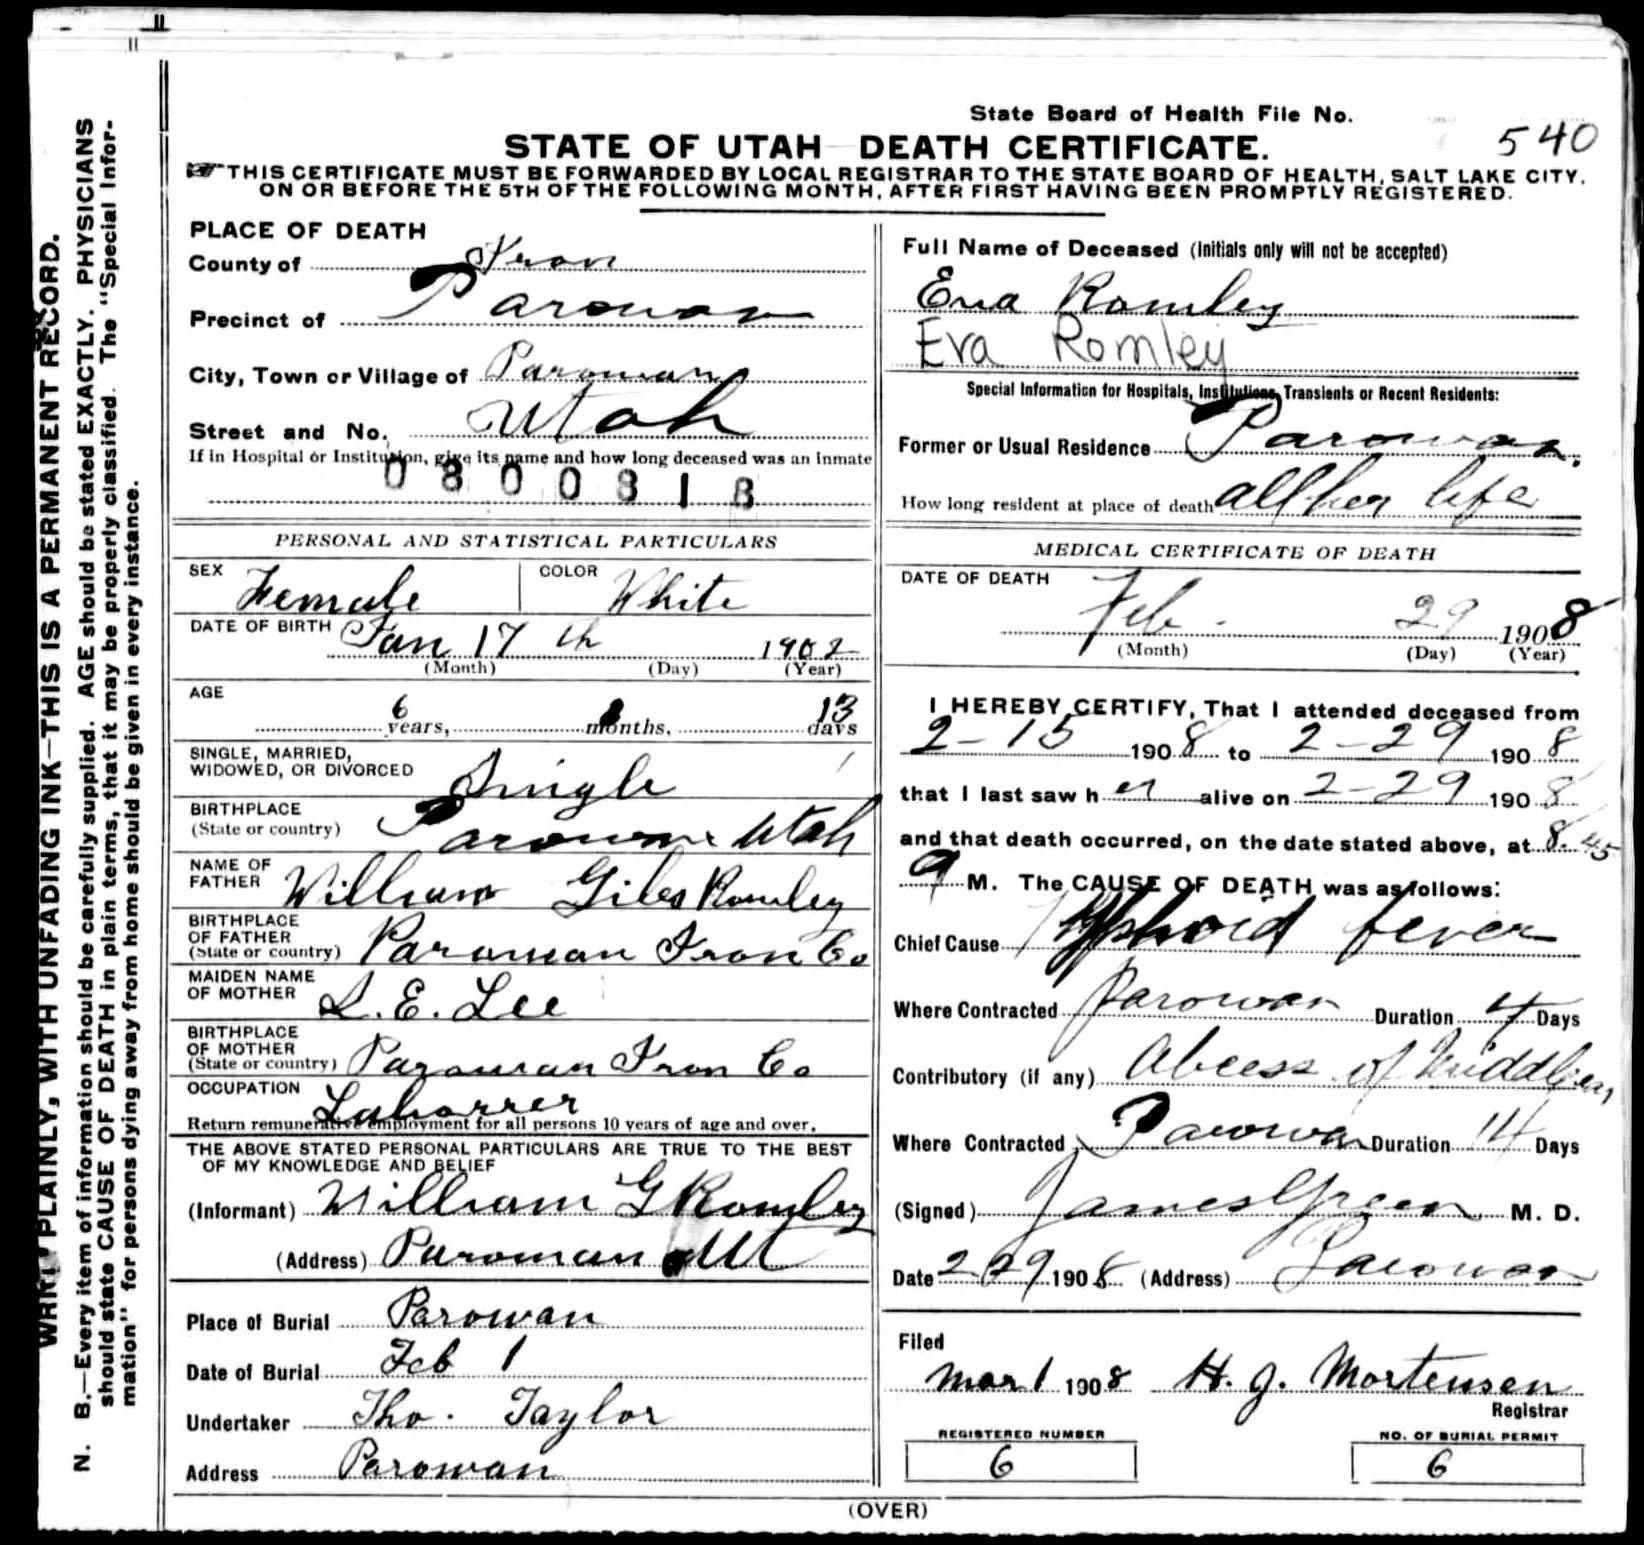 State Board of Health File No.
540
STATE OF UTAH DEATH CERTIFICATE.
THIS CERTIFICATE MUST BE FORWARDED BY LOCAL REGISTRAR TO THE STATE BOARD OF HEALTH, SALT LAKE CITY,
ON OR BEFORE THE 5TH OF THE FOLLOWING MONTH, AFTER FIRST HAVING BEEN PROMPTLY REGISTERED.
WRITE PLAINLY, WITH UNFADING INK—THIS IS A PERMANENT RECORD.
N. B.—Every item of information should be carefully supplied. AGE should be stated EXACTLY. PHYSICIANS
should state CAUSE OF DEATH in plain terms, that it may be properly classified. The "Special Infor-
mation" for persons dying away from home should be given in every instance.
PLACE OF DEATH
County of Iron
Precinct of Parowan
City, Town or Village of Parowan
Street and No. Utah
If in Hospital or Institution, give its name and how long deceased was an inmate
PERSONAL AND STATISTICAL PARTICULARS
SEX Female COLOR White
DATE OF BIRTH Jan 17 th 1902
(Month) (Day) (Year)
AGE
6 years, months, 13 days
SINGLE, MARRIED,
WIDOWED, OR DIVORCED Single
BIRTHPLACE
(State or country) Parowan Utah
NAME OF
FATHER William Giles Romley
BIRTHPLACE
OF FATHER
(State or country) Parowan Iron Co
MAIDEN NAME
OF MOTHER E. Lee
BIRTHPLACE
OF MOTHER
(State or country) Parowan Iron Co
OCCUPATION
Laborrer
Return remunerative employment for all persons 10 years of age and over.
THE ABOVE STATED PERSONAL PARTICULARS ARE TRUE TO THE BEST
OF MY KNOWLEDGE AND BELIEF
(Informant) William G Romley
(Address) Parowan Ut
Place of Burial Parowan
Date of Burial Feb 1
Undertaker Tho. Taylor
Address Parowan
Full Name of Deceased (Initials only will not be accepted)
Eva Romley
Eva Romley
Special Information for Hospitals, Institutions, Transients or Recent Residents:
Former or Usual Residence Parowan.
How long resident at place of death all her life
MEDICAL CERTIFICATE OF DEATH
DATE OF DEATH
Feb. 29 1908
(Month) (Day) (Year)
I HEREBY CERTIFY, That I attended deceased from
2-15 1908 to 2-29 1908
that I last saw her alive on 2-29 1908
and that death occurred, on the date stated above, at 8.45
a M. The CAUSE OF DEATH was as follows:
Chief Cause Typhoid fever
Where Contracted Parowan Duration Days
Contributory (if any) Abcess of Middle ear
Where Contracted Parowan Duration 14 Days
(Signed) James Green M. D.
Date 2/29 1908 (Address) Parowan
Filed
Mar 1 1908 H. J. Mortensen
Registrar
REGISTERED NUMBER
6
NO. OF BURIAL PERMIT
6
(OVER)